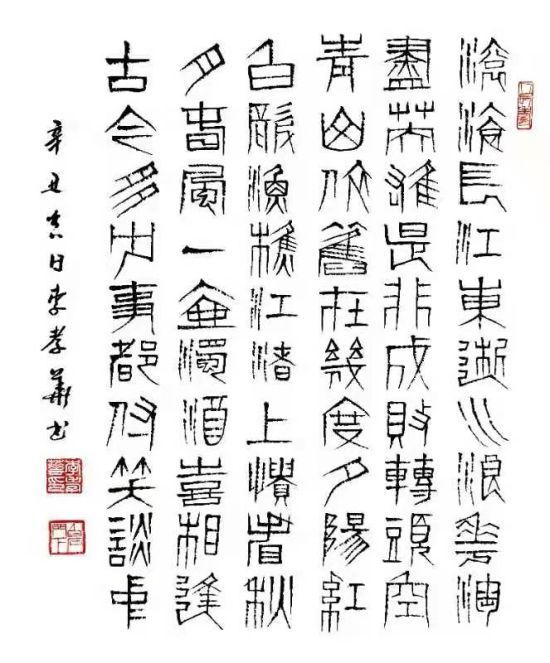 滾滾長江東逝水浪花淘
盡英雄是非成敗轉頭空
青山依舊在幾度夕陽紅
白髮漁樵江渚上慣看秋
月春風一壺濁酒喜相逢
古今多少事都付笑談中
辛丑吉日李孝书